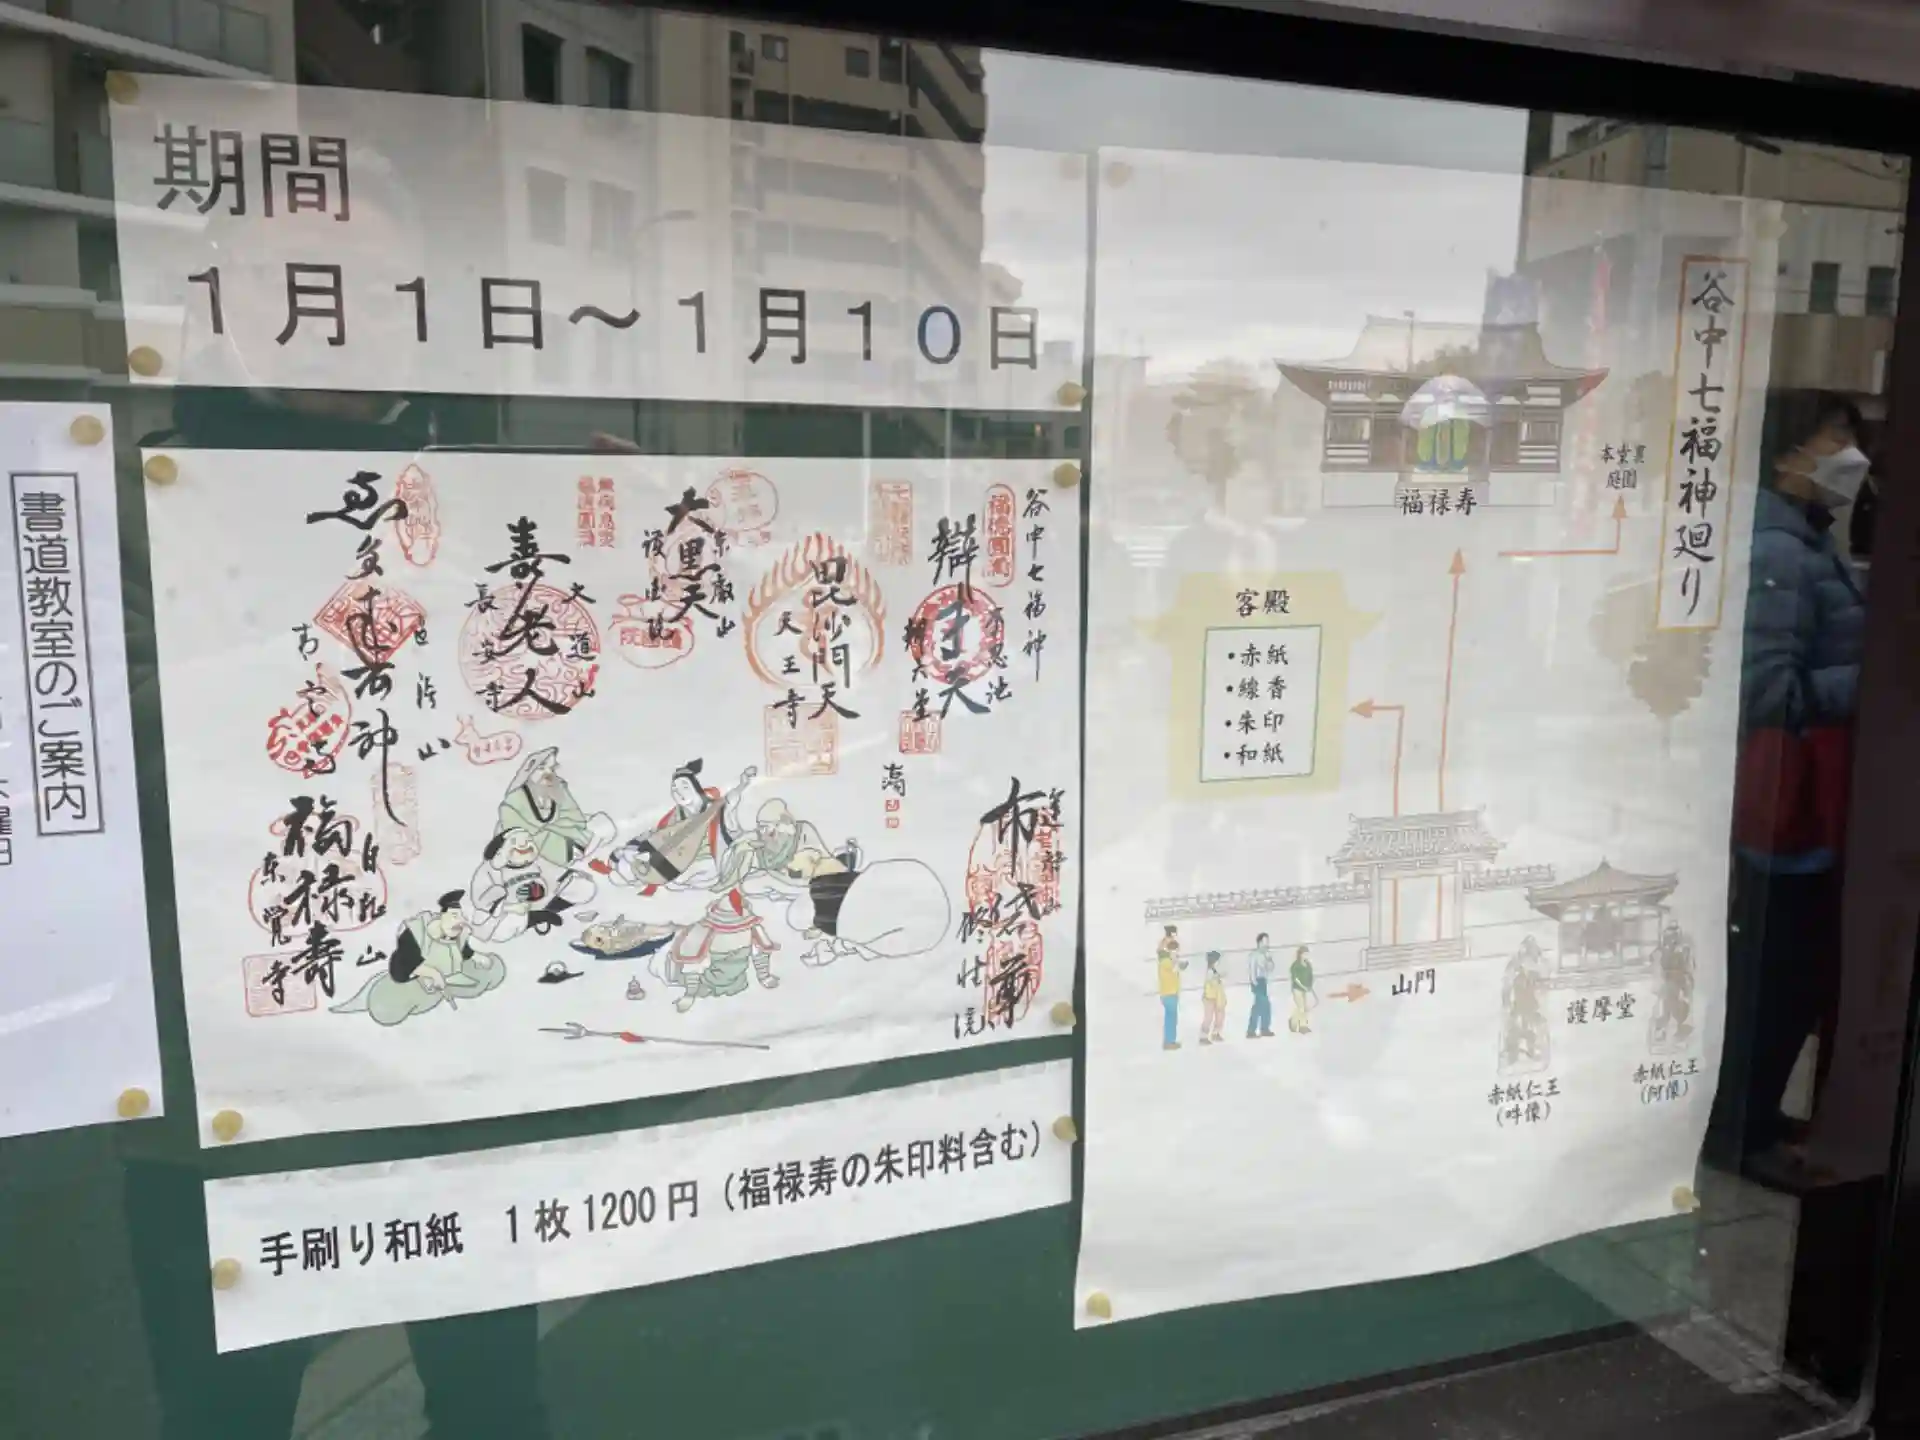 期間
1月1日～1月10日
書道教室のご案内
谷中七福神
不忍池
辯才天
辯天堂
毘沙門天
天王寺
東叡山
大黒天
護国院
大道山
寿老人
長安寺
恵比寿神
青雲寺
福禄寿
白龍山
東覚寺
布袋尊
修性院
手刷り和紙 1枚1200円（福禄寿の朱印料含む）
谷中七福神廻り
本堂裏
庭園
福禄寿
客殿
・赤紙
・線香
・朱印
・和紙
山門
護摩堂
赤紙仁王
(吽像)
赤紙仁王
(阿像)